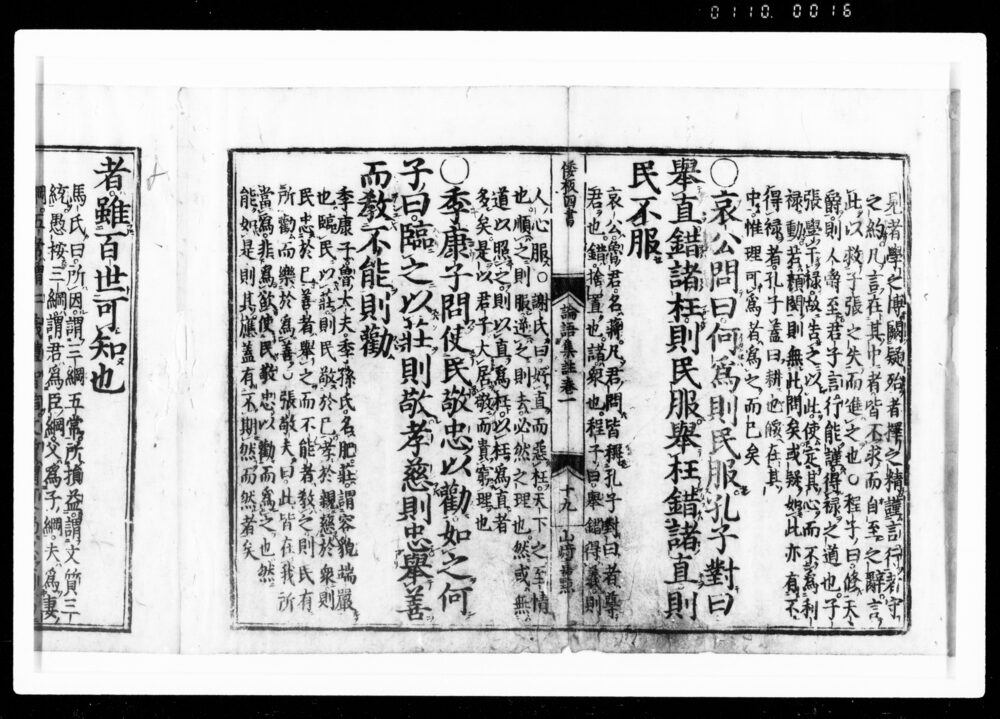 0110. 0016
見者學之博闕疑殆者擇之精謹言行者守
之約凡言在其中者皆不求而自至之辭言
此以救子張之失而進之也○程子曰脩天
爵則人爵至君子言行能謹得祿之道也子
張學干祿故告之以此使定其心而不爲利
祿動若顏閔則無此問矣或疑如此亦有不
得祿者孔子蓋曰耕也餒在其
中惟理可爲者爲之而已矣
○哀公問曰何爲則民服孔子對曰
舉直錯諸枉則民服舉枉錯諸直則
民不服
哀公魯君名蔣凡君問皆稱孔子對曰者尊
君也錯捨置也諸衆也程子曰舉錯得義則
倭板四書
論語集註卷一
十九
人心服○謝氏曰好直而惡枉天下之至情
也順之則服逆之則去必然之理也然或無
道以照之則以直爲枉以枉爲直者
多矣是以君子大居敬而貴窮理也
○季康子問使民敬忠以勸如之何
子曰臨之以莊則敬孝慈則忠舉善
而敎不能則勸
季康子魯大夫季孫氏名肥莊謂容貌端嚴
也臨民以莊則民敬於己孝於親慈於衆則
民忠於己善者舉之而不能者敎之則民有
所勸而樂於爲善○張敬夫曰此皆在我所
當爲非爲欲使民敬忠以勸而爲之也然
能如是則其應蓋有不期然而然者矣
者雖百世可知也
馬氏曰所因謂三綱五常所損益謂文質三
統愚按三綱謂君爲臣綱父爲子綱夫爲妻